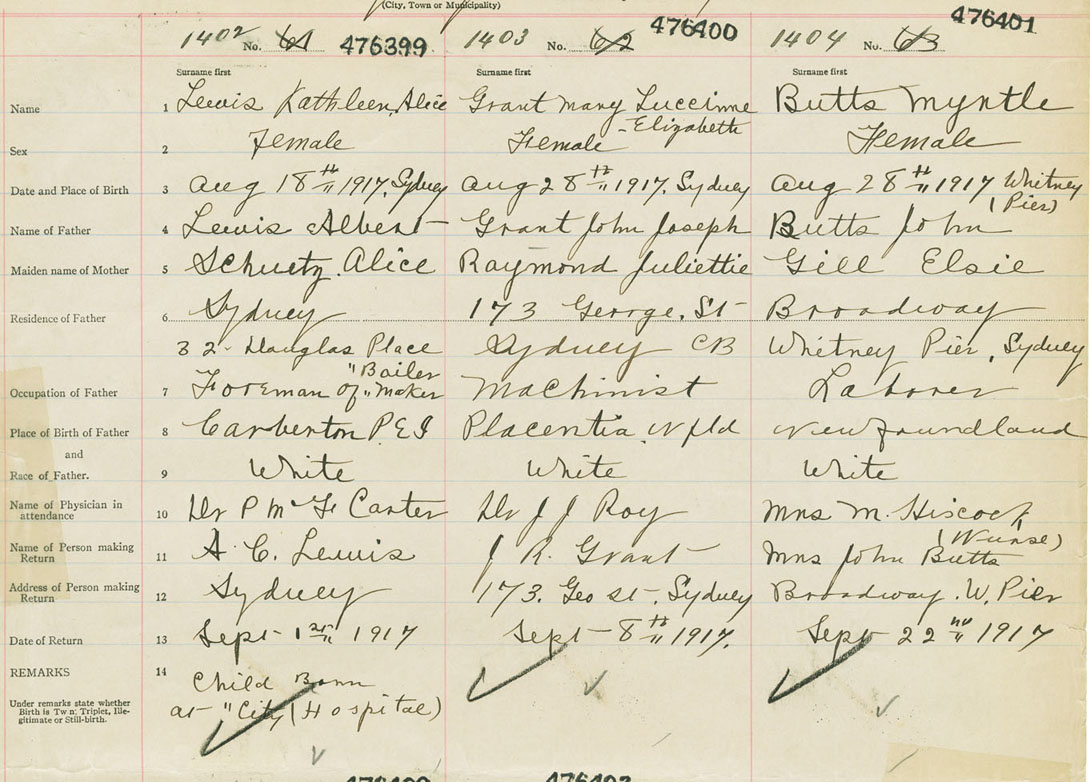 (City, Town or Municipality)
1402 No. 61 476399 1403 No. 62 476400 1404 No. 63 476401
Surname first Surname first Surname first
Name 1 Lewis Kathleen Alice Grant Mary Luccinne Butts Myrtle
- Elizabeth
Sex 2 Female Female Female
Date and Place of Birth 3 Aug 18th 1917. Sydney Aug 28th 1917. Sydney Aug 28th 1917 Whitney
(Pier)
Name of Father 4 Lewis Albert Grant John Joseph Butts John
Maiden name of Mother 5 Schuetz. Alice Raymond Juliettie Gill Elsie
Residence of Father 6 Sydney 173 George. St Broadway
32 - Douglas Place Sydney CB Whitney Pier, Sydney
"Bailer
Occupation of Father 7 Foreman of "Maker Machinist Laborer
Place of Birth of Father 8 Carberton P.E.I Placentia Nfld Newfoundland
and
Race of Father. 9 White White White
Name of Physician in
attendance 10 Dr P McF Carter Dr J J Roy Mrs M. Hiscock
(Nurse)
Name of Person making
Return 11 A. C. Lewis J R. Grant Mrs John Butts
Address of Person making
Return 12 Sydney 173. Geo St, Sydney Broadway. W. Pier
Date of Return 13 Sept 1st 1917 Sept 8th 1917. Sept 22nd 1917
REMARKS 14 Child Born
Under remarks state whether
Birth is Twin; Triplet, Ille-
gitimate or Still-birth.
at "City (Hospital)